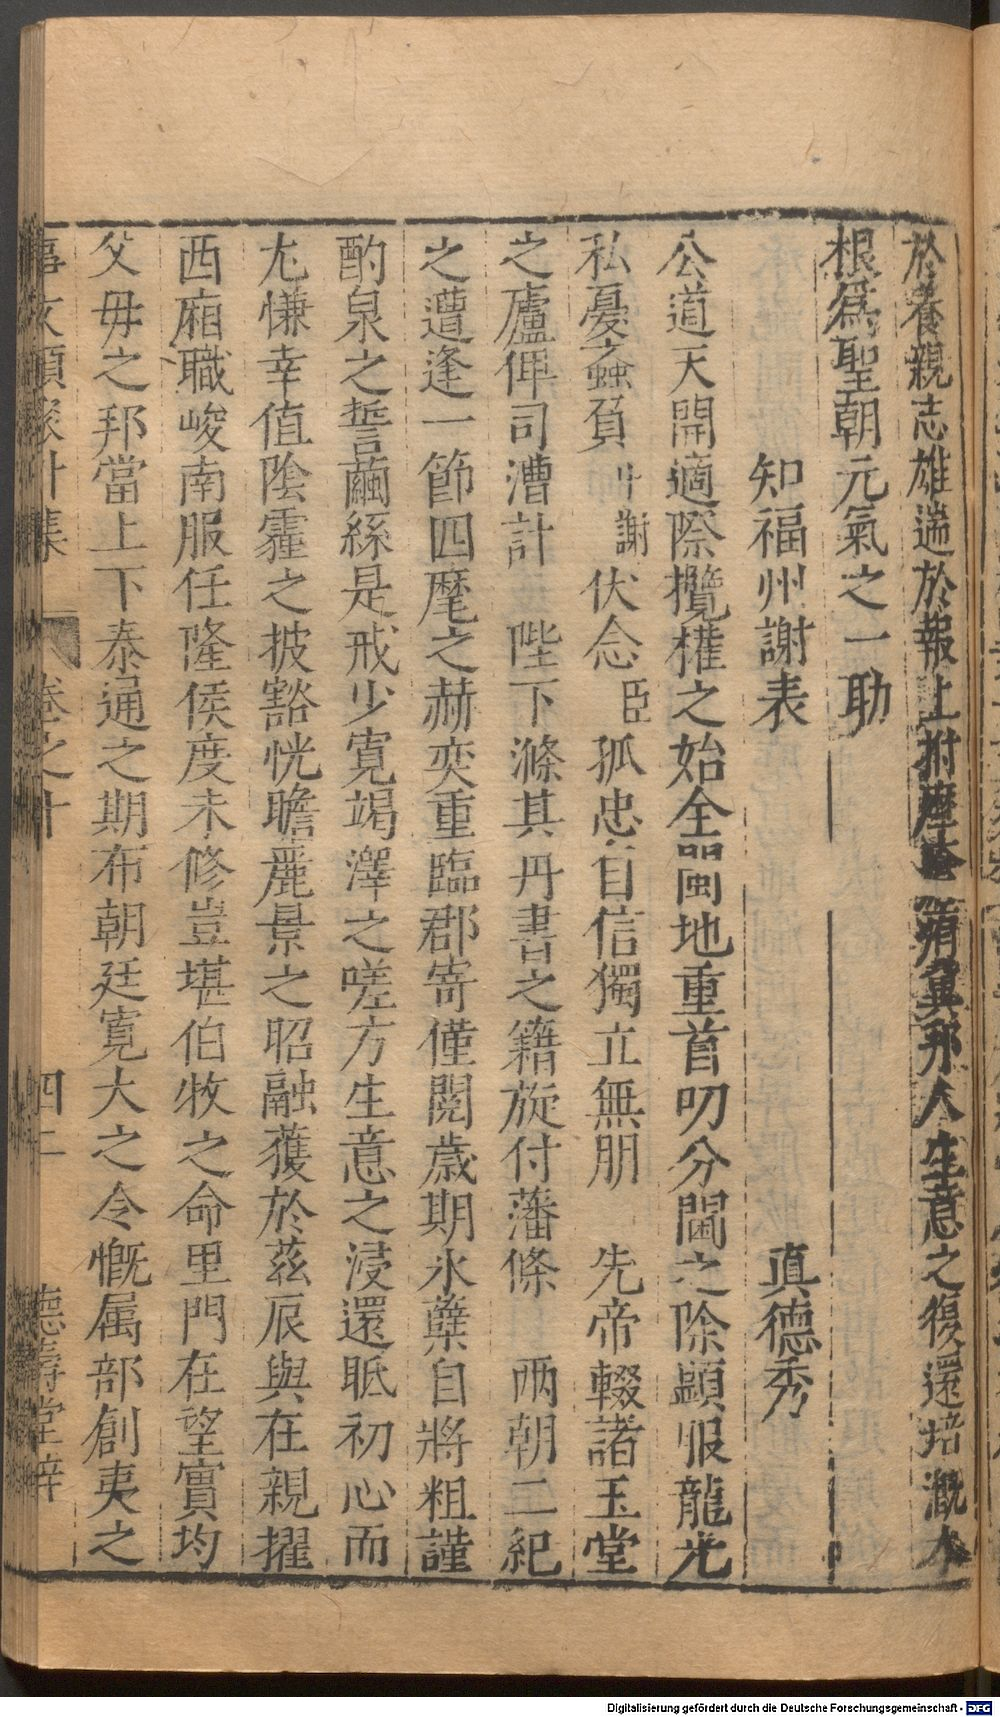 於養親志雄遄於報上拊摩瘡痏冀那人生意之復還培溉本
根爲聖朝元氣之一助
知福州謝表 真德秀
公道天開適際攬權之始全閩地重首叨分閫之除顯服龍光
私憂蝱負 中謝 伏念 臣 孤忠自信獨立無朋 先帝輟諸玉堂
之廬俾司漕計 陛下滌其丹書之籍旋付藩條 兩朝二紀
之遭逢一節四麾之赫奕重臨郡寄僅閱歲期氷蘖自將粗謹
酌泉之誓繭絲是戒少寬竭澤之嗟方生意之浸還眂初心而
尤慊幸値陰霾之披豁恍瞻麗景之昭融獲於茲辰與在親擢
西廂職峻南服任隆侯度未修豈堪伯牧之命里門在望實均
父母之邦當上下泰通之期布朝廷寬大之令慨属部創夷之
事文類聚 集 卷之十 四十二 德壽堂梓
Digitalisierung gefördert durch die Deutsche Forschungsgemeinschaft - DFG